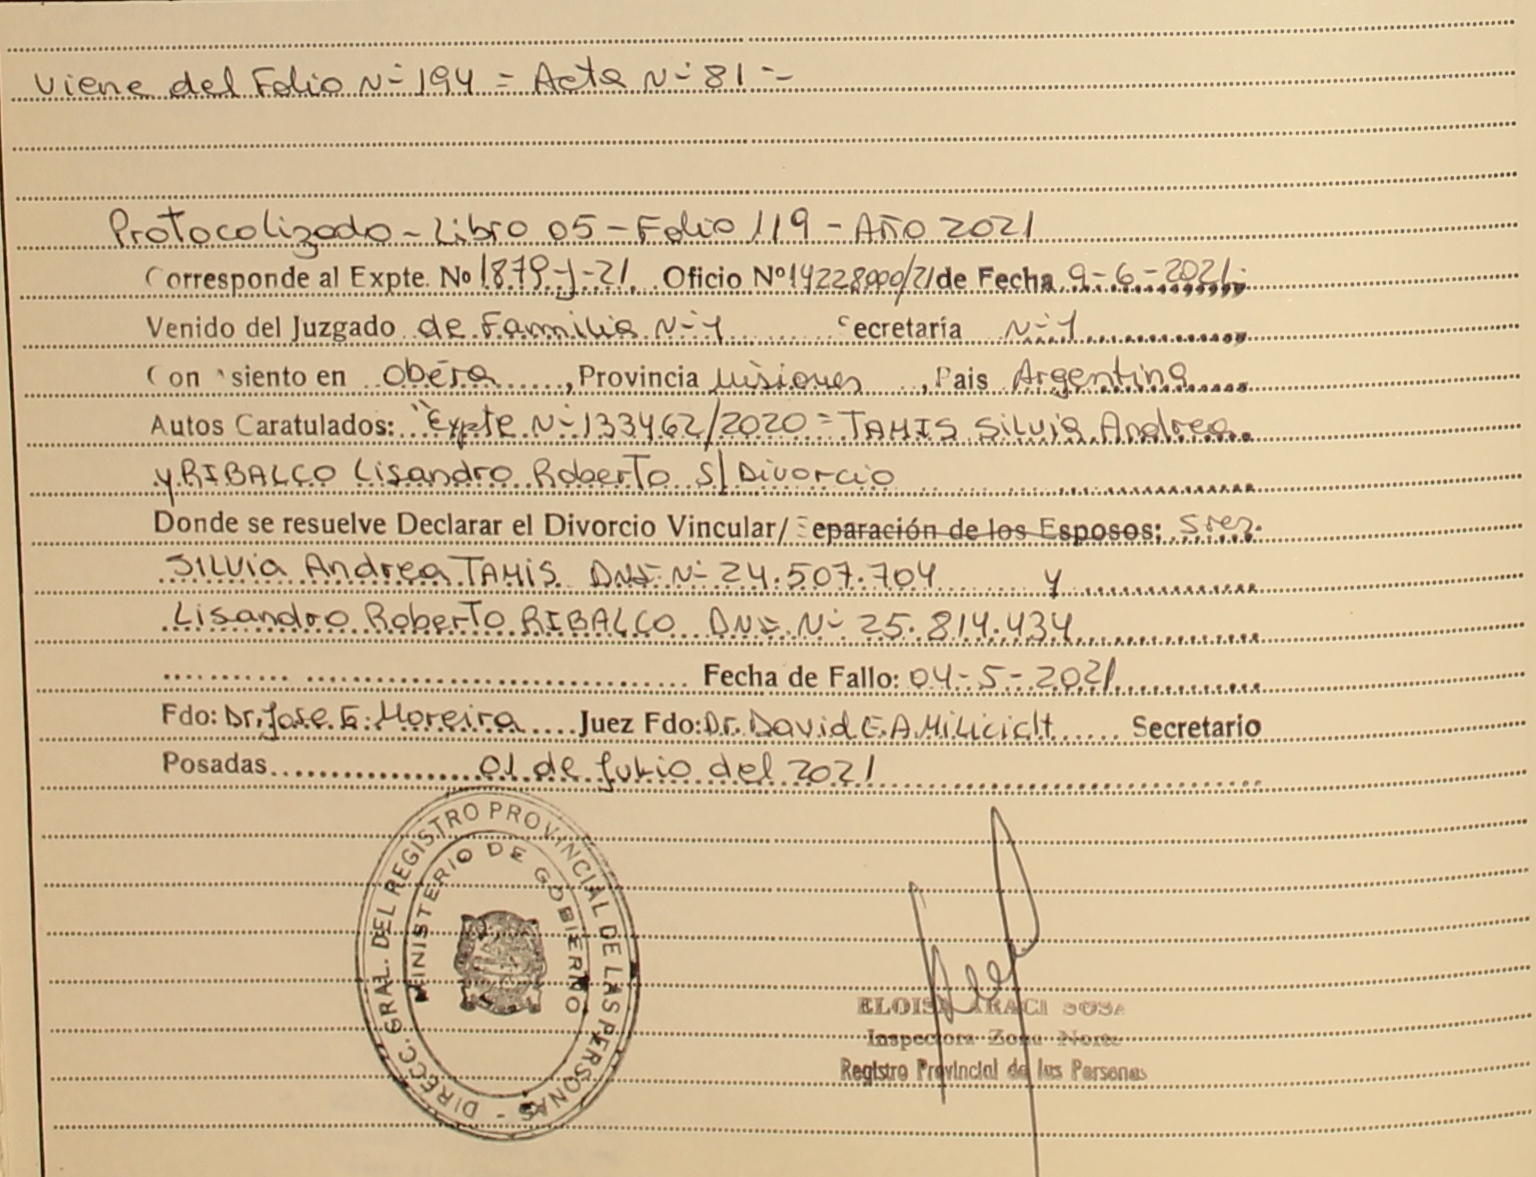 Viene del Folio Nº 194 = Acta Nº 81 --
Protocolizado - Libro 05 - Folio 119 - Año 2021
Corresponde al Expte. No 1879-J-21. Oficio Nº 14228000/21 de Fecha 9-6-2021.
Venido del Juzgado de Familia Nº 1 Secretaría Nº 1
Con siento en Oberá, Provincia Misiones, Pais Argentina
Autos Caratulados: "Expte Nº 133462/2020 = TAMIS Silvia Andrea
y RIBALCO Lisandro Roberto S/ Divorcio
Donde se resuelve Declarar el Divorcio Vincular/ Separación de los Esposos: Sres.
Silvia Andrea TAMIS DNI Nº 24.507.704 y
Lisandro Roberto RIBALCO DNI Nº 25.814.434
Fecha de Fallo: 04-5-2021
Fdo: Dr. Jose G. Moreira Juez Fdo: Dr. David E.A. Milicich Secretario
Posadas 01 de Julio del 2021
DIRECC. GRAL. DEL REGISTRO PROVINCIAL DE LAS PERSONAS -
MINISTERIO DE GOBIERNO
ELOISA IRACI SOSA
Inspectora Zona Norte
Registro Provincial de las Personas